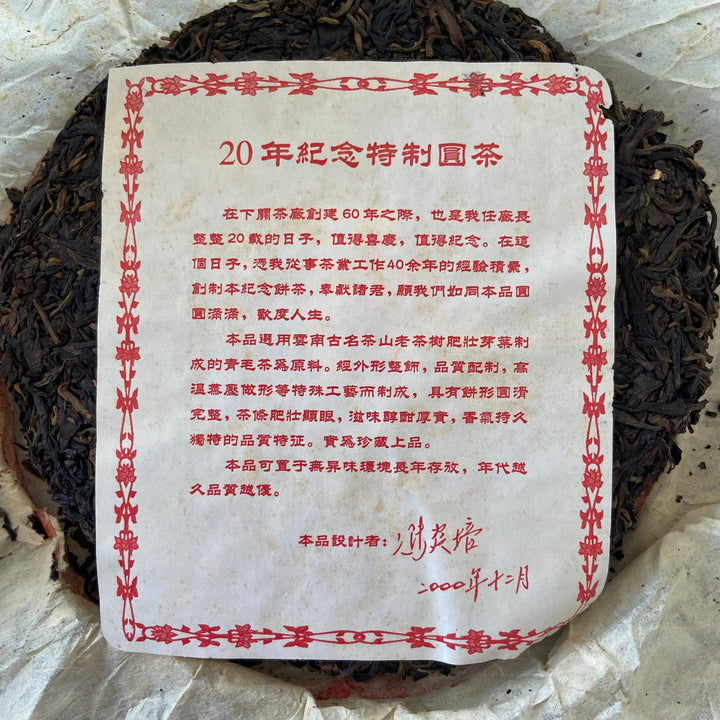 20年紀念特制圓茶
在下關茶廠創建60年之際，也是我任廠長
整整20載的日子，值得喜慶，值得紀念。在這
個日子，憑我從事茶業工作40余年的經驗積累，
創制本紀念餅茶，奉獻諸君，願我們如同本品圓
圓滿滿，歡度人生。
本品選用雲南古名茶山老茶樹肥壯芽葉制
成的青毛茶爲原料。經外形整飾，品質配制，高
溫蒸壓做形等特殊工藝而制成，具有餅形圓滑
完整，茶條肥壯顯眼，滋味醇酣厚實，香氣持久
獨特的品質特征。實爲珍藏上品。
本品可置于無异味環境長年存放，年代越
久品質越優。
本品設計者：馮炎培
2000年十二月